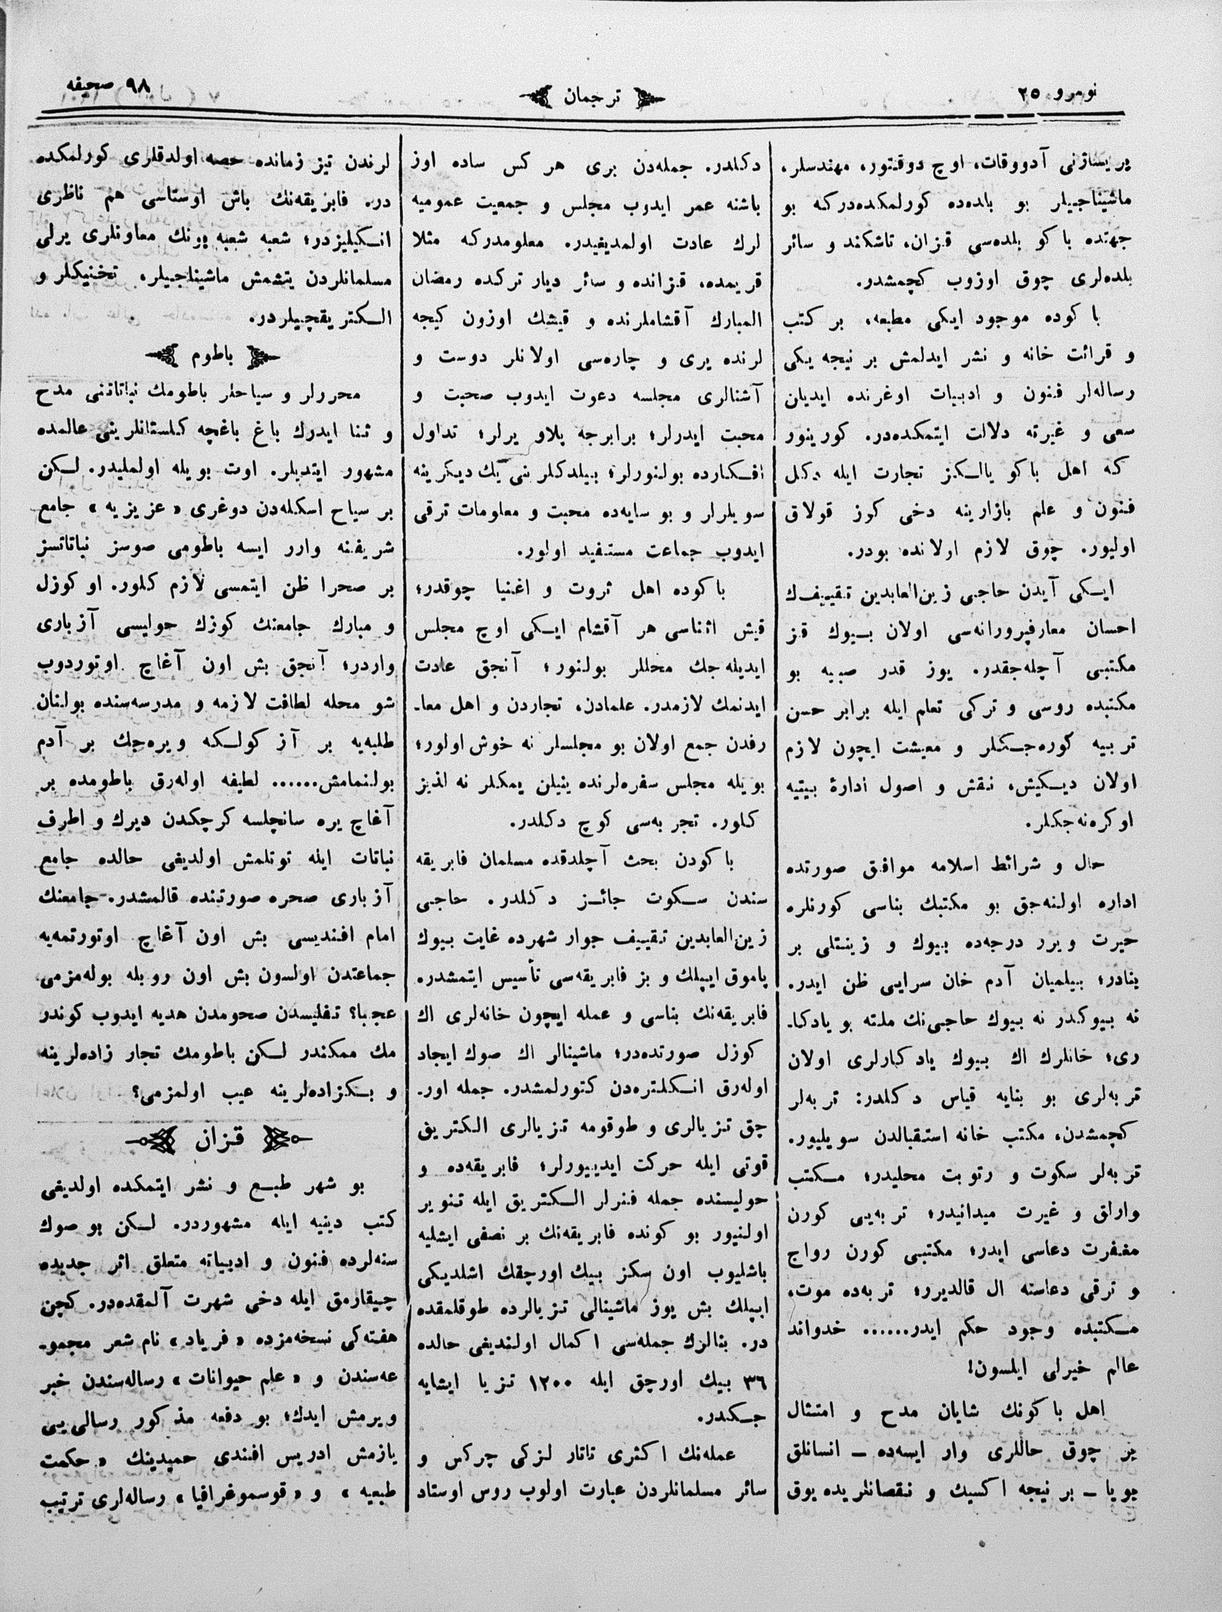 نومرو ٢٥
ترجمان
٩٨ صحيفه
پريسآژنی آدووقات، اوچ دوقتور، مهندسلر،
ماشيناجيلر بو بلده‌ده كورلمكده‌دركه بو
جهتده باكو بلده‌سی قزان، تاشكند و سائر
بلده‌لری چوق اوزوب كچمشدر.
باكوده موجود ايكی مطبعه، بر كتب
و قرائت خانه و نشر ايدلمش بر نيجه يكی
رساله‌لر فنون و ادبيات اوغرنده ايديان
سعی و غيرته دلالت ايتمكده‌در. كورينور
كه اهل باكو يالكز تجارت ايله دكل
فنون و علم بازارينه دخی كوز قولاق
اوليور. چوق لازم اولانده بودر.
ايكی آيدن حاجی زين‌العابدين تقييفك
احسان معارفپرورانه‌سی اولان بيوك قز
مكتبی آچله‌جقدر. يوز قدر صبيه بو
مكتبده روسی و تركی تعلم ايله برابر حسن
تربيه كوره‌جكلر و معيشت ايچون لازم
اولان ديكيش، نقش و اصول ادارۀ بيتيه
اوكره‌نه‌جكلر.
حال و شرائط اسلامه موافق صورتده
اداره اولنه‌جق بو مكتبك بناسی كورنلره
حيرت ويرر درجه‌ده بيوك و زينتلی بر
بنادر؛ بيلميان آدم خان سرايی ظن ايدر.
نه بيوكدر نه بيوك حاجی‌نك ملته بو يادكا-
ری؛ خانلرك اك بيوك يادكارلری اولان
تربه‌لری بو بنايه قياس دكلدر: تربه‌لر
كچمشدن، مكتب خانه استقبالدن سويليور.
تربه‌لر سكوت و رتوبت محليدر؛ مكتب
واراق و غيرت ميدانيدر؛ تربه‌يی كورن
مغفرت دعاسی ايدر؛ مكتبی كورن رواج
و ترقی دعاسنه ال قالديرر؛ تربه‌ده موت،
مكتبده وجود حكم ايدر...... خداوند
عالم خيرلی ايلسون!
اهل باكونك شايان مدح و امتثال
بر چوق حاللری وار ايسه‌ده ــ انسانلق
بويا ــ بر نيجه اكسيك و نقصانلريده يوق
دكلدر. جمله‌دن بری هر كس ساده اوز
باشنه عمر ايدوب مجلس و جمعيت عموميه
لرك عادت اولمديغيدر. معلومدركه مثلا
قريمده، قزانده و سائر ديار تركده رمضان
المبارك آقشاملرنده و قيشك اوزون كيجه
لرنده يری و چاره‌سی اولانلر دوست و
آشنالری مجلسه دعوت ايدوب صحبت و
محبت ايدرلر؛ برابرجه پلاو يرلر؛ تداول
افكارده بولنورلر؛ بيلدكلرينی بك ديكرينه
سويلرلر و بو سايه‌ده محبت و معلومات ترقی
ايدوب جماعت مستفيد اولور.
باكوده اهل ثروت و اغنيا چوقدر؛
قيش اثناسی هر آقشام ايكی اوچ مجلس
ايديله‌جك محللر بولنور؛ آنجق عادت
ايدنمك لازمدر. علمادن، تجاردن و اهل معا-
رفدن جمع اولان بو مجلسلر نه خوش اولور؛
بويله مجلس سفره‌لرنده ينيلن يمكلر نه لذيذ
كلور. تجربه‌سی كوچ دكلدر.
باكودن بحث آچلدقده مسلمان فابريقه
سندن سكوت جائز دكلدر. حاجی
زين‌العابدين تقييف جوار شهرده غايت بيوك
پاموق ايپلك و بز فابريقه‌سی تأسيس ايتمشدر.
فابريقه‌نك بناسی و عمله ايچون خانه‌لری اك
كوزل صورتده‌در؛ ماشينالر اك صوك ايجاد
اوله‌رق انكلتره‌دن كتورلمشدر. جمله اور-
چق تزيالری و طوقومه تزيالری الكتريق
قوتی ايله حركت ايدييورلر؛ فابريقه‌ده و
حوليسنده جمله فنرلر الكتريق ايله تنوير
اولنيور بو كونده فابريقه‌نك بر نصفی ايشليه
باشليوب اون سكز بيك اورجقك اشلديكی
ايپلك بش يوز ماشينالی تزيالرده طوقلمقده
در. بنالرك جمله‌سی اكمال اولنديغی حالده
٣٦ بيك اورچق ايله ١٢٠٠ تزيا ايشايه
جكدر.
عمله‌نك اكثری تاتار لزكی چركس و
سائر مسلمانلردن عبارت اولوب روس اوستاد
لرندن تيز زمانده حصه اولدقلری كورلمكده
در. فابريقه‌نك باش اوستاسی هم ناظری
انكيليزدر؛ شعبه شعبه بونك معاونلری يرلی
مسلمانلردن يتشمش ماشيناجيلر، تخنيكلر و
الكتريقچيلردر.
باطوم
محررلر و سياحلر باطومك نباتاتنی مدح
و ثنا ايدرك باغ باغچه كلستانلرينی عالمده
مشهور ايتديلر. اوت بويله اولمليدر. لكن
بر سياح اسكله‌دن دوغری « عزيزيه » جامع
شريفنه وارر ايسه باطومی صوسز نباتاتسز
بر صحرا ظن ايتمسی لازم كلور. او كوزل
و مبارك جامعنك كوزك حوليسی آزباری
واردر؛ آنجق بش اون آغاچ اوتوردوب
شو محله لطافت لازمه و مدرسه‌سنده بولنان
طلبه‌يه بر آز كولكه ويره‌جك بر آدم
بولنمامش...... لطيفه اوله‌رق باطومده بر
آغاچ يره سانچلسه كرچكدن ديرك و اطرف
نباتات ايله توتلمش اولديغی حالده جامع
آزباری صحره صورتنده قالمشدر. جامعنك
امام افنديسی بش اون آغاچ اوتورتمه‌يه
جماعتدن اولسون بش اون روبله بوله‌مزمی
عجبا؟ تفليسدن صحومدن هديه ايدوب كوندر
مك ممكندر لكن باطومك تجار زاده‌لرينه
و بكزاده‌لرينه عيب اولمزمی؟
قزان
بو شهر طبع و نشر ايتمكده اولديغی
كتب دينيه ايله مشهوردر. لكن بو صوك
سنه‌لرده فنون و ادبياته متعلق اثر جديده
چيقارمق ايله دخی شهرت آلمقده‌در. كچن
هفته‌كی نسخه‌مزده « فرياد » نام شعر مجمو-
عه‌سندن و « علم حيوانات » رساله‌سندن خبر
ويرمش ايدك؛ بو دفعه مذكور رسالی‌يی
يازمش ادريس افندی حميدينك « حكمت
طبعيه » و « قوسموغرافيا » رساله‌لری ترتيب